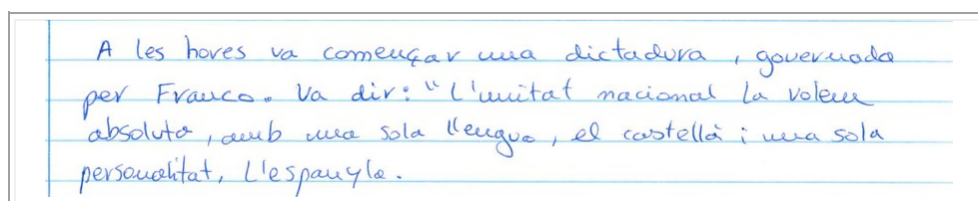 A les hores va començar una dictadura, governada
per Franco. Va dir: "L'unitat nacional la volem
absoluta, amb una sola llengua, el castellà i una sola
personalitat, L'espanyla.